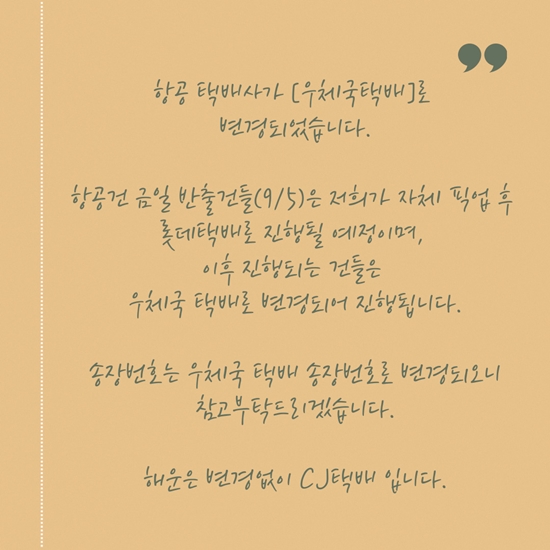 항공 택배사가 [우체국택배]로
변경되었습니다.
항공건 금일 반출건들(9/5)은 저희가 자체 픽업 후
롯데택배로 진행될 예정이며,
이후 진행되는 건들은
우체국 택배로 변경되어 진행됩니다.
송장번호는 우체국 택배 송장번호로 변경되오니
참고부탁드리겠습니다.
해운은 변경없이 CJ택배 입니다.